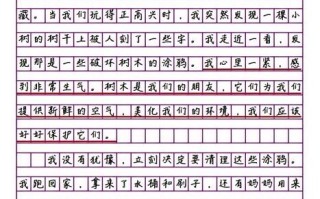 藏。当我们玩得正高兴时，我突然发现一棵小
树的树干上被人刻了一些字。我走近一看，发
现那是一些破坏树木的涂鸦。我心里一紧，感
到非常生气。树木是我们的朋友，它们为我们
提供新鲜的空气，美化我们的环境，我们应该
好好保护它们。
我没有犹豫，立刻决定要清理这些涂鸦。
我跑回家，拿来了水桶和刷子，还有妈妈用来